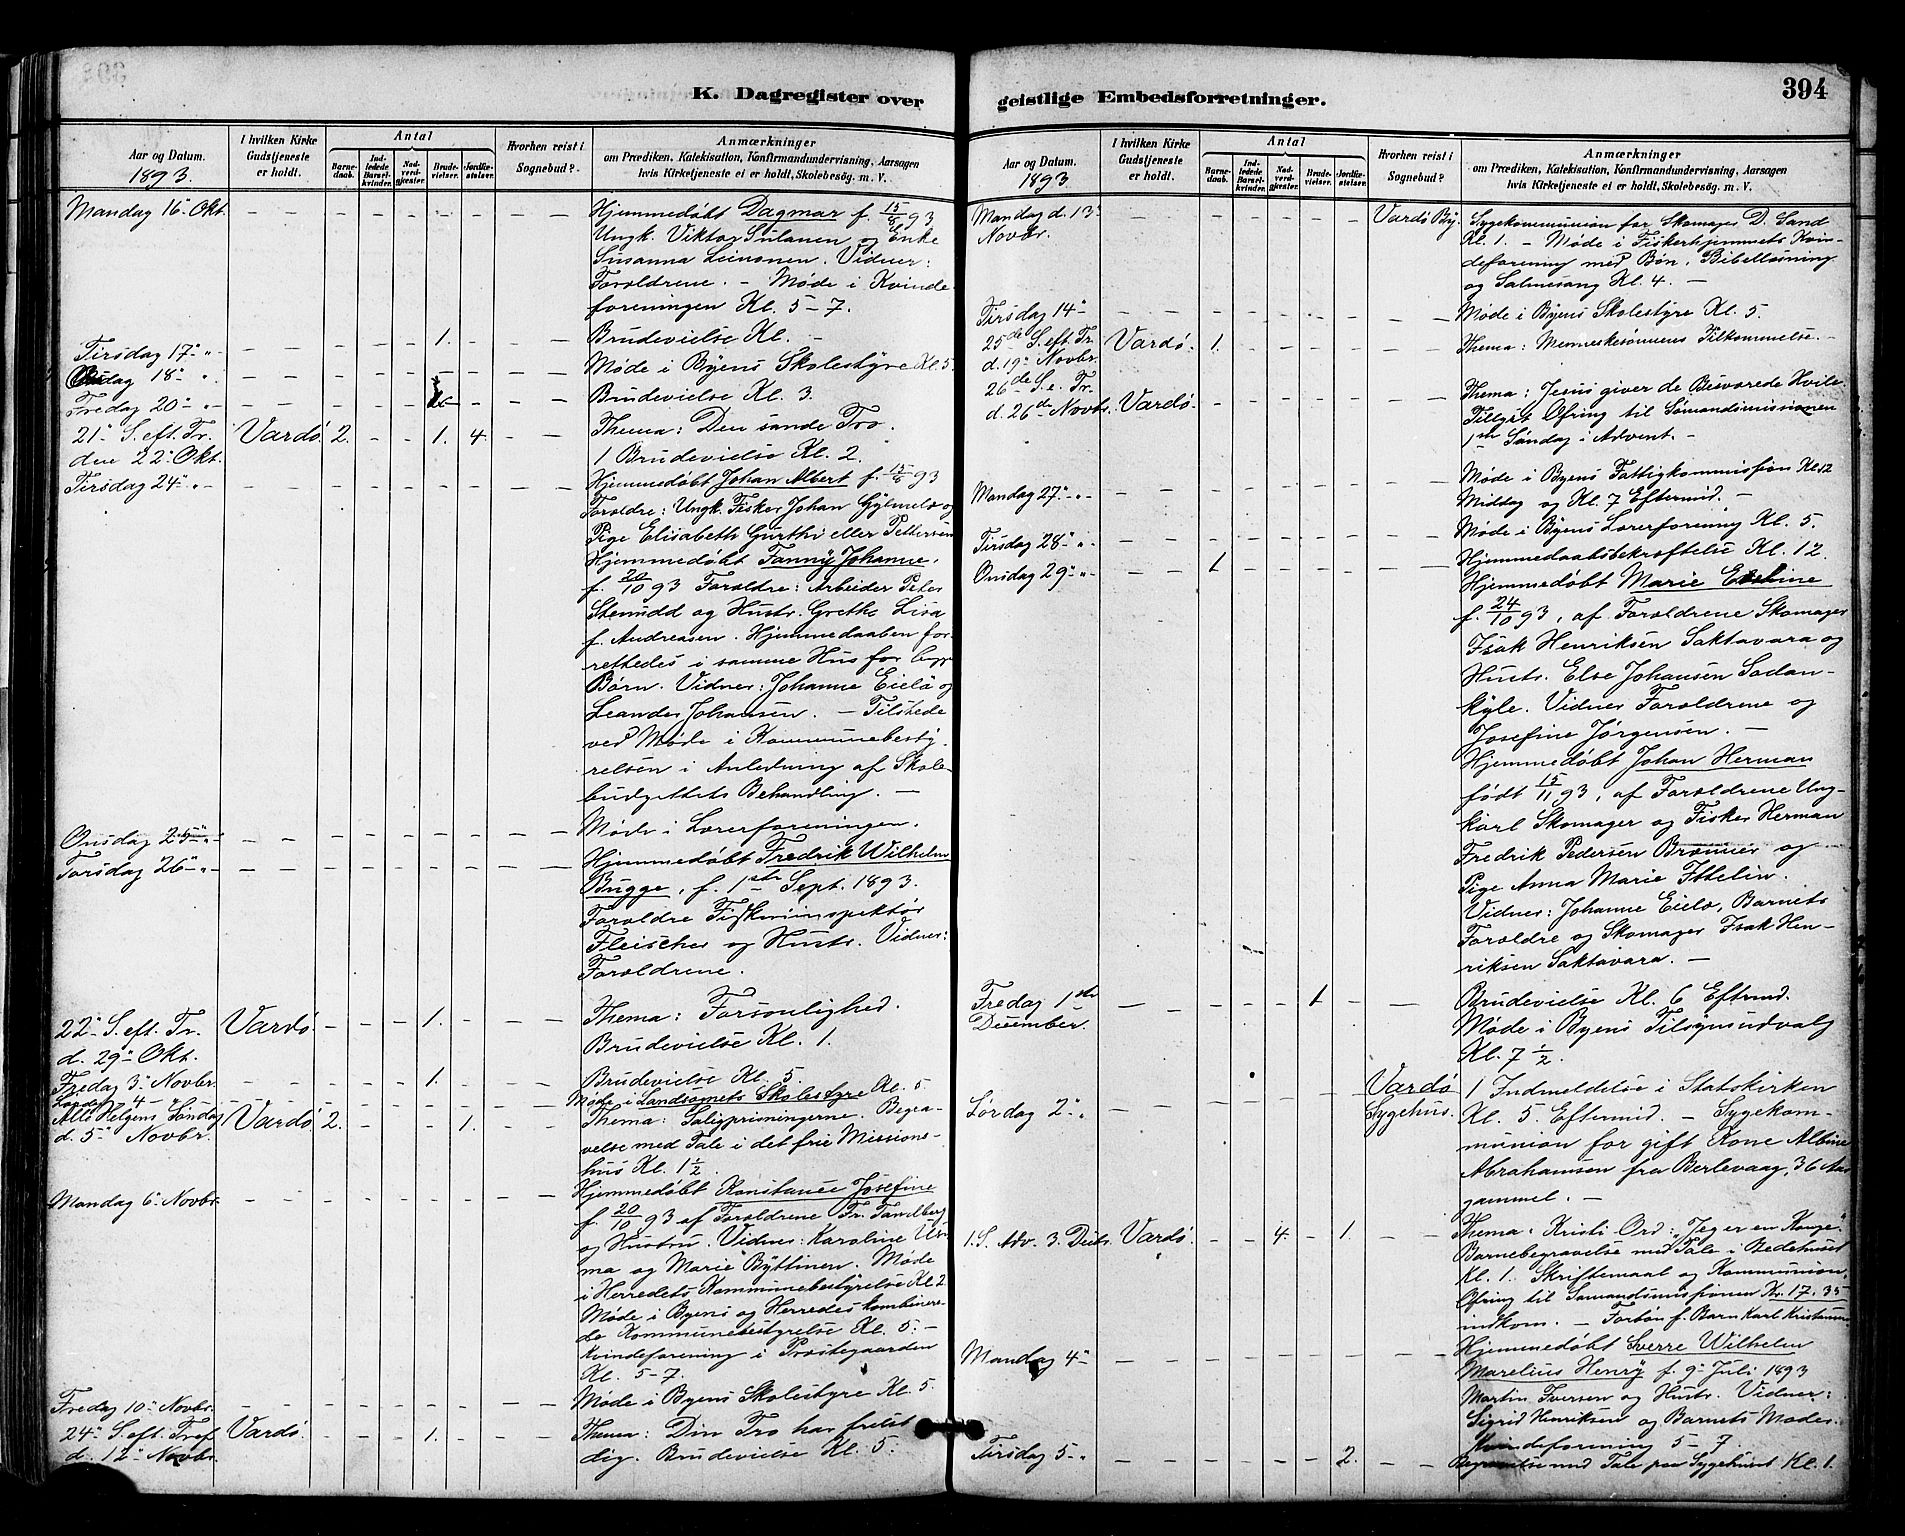 K. Dagregister over
Aar og Datum. 1893.
I hvilken Kirke Gudstjeneste er holdt.
Antal
Barnedaab.
Indledede Barselkvinder.
Nadverdgjester.
Brudevielser.
Jordfæstelser.
Hvorhen reist i Sognebud?
Anmærkninger
om Prædiken, Katekisation, Konfirmandundervisning, Aarsagen
hvis Kirketjeneste ei er holdt, Skolebesøg. m. V.
Mandag 16 Okt. Hjemmedøbt Dagmar f. 15/8 93
Ungk. Viktor Sulanen og Enke
Susanna Leinonen. Vidner:
Forældrene. – Møde i Kvinde
foreningen Kl. 5–7.
Tirsdag 17 " 1. Brudevielse Kl. –
Onsdag 18 " Møde i Byens Skolestyre Kl. 5
Fredag 20 " Brudevielse Kl. 3.
21 S. eft. Tr. Vardø 2. – – 1. 4. Thema: Den sande Tro.
den 22 Okt. 1 Brudevielse Kl. 2.
Tirsdag 24 " Hjemmedøbt Johan Albert f. 15/8 93
Forældre: Ungk. Fisker Johan og
Pige Elisabeth eller Pettersen
Hjemmedøbt Fanny Johanne,
f. 20/10 93 Forældre: Arbeider Peter
Stenudd og Hustr. Grethe Lisa
f. Andreasen. Hjemmedaaben for-
rettedes i samme Hus for begge
Børn. Vidner: Johanne Eielo og
Leander Johansen. – Tilstede
ved Møde i Kommunebesty-
relsen i Anledning af Skole-
budgettets Behandling. –
Onsdag 25 " Møde i Lærerforeningen.
Torsdag 26 " Hjemmedøbt Fredrik Wilhelm
Bugge, f. 1ste Sept. 1893.
Forældre Fiskeriinspektør
Fleischer og Hustr. Vidner:
Forældrene.
22 S. eft. Tr. Vardø. 1. Thema: Forsonlighed.
d. 29 Okt. Brudevielse Kl. 1.
Fredag 3 Novbr. 1. Brudevielse Kl. 5
Lørdag 4 – " Møde i Landsognets Skolestyre Kl. 5
Alle Helgens Søndag Vardø 2. 1. Thema: Saligprisningerne. Begra-
d. 5 Novbr. velse med Tale i det frie Missions-
hus Kl. 1 1/2.
Mandag 6 Novbr. Hjemmedøbt Konstance Josefine
f. 20/10 93 af Forældrene Fr. Tandberg
og Hustru. Vidner: Karoline
og Marie Byttinen. Møde
i Herredets Kommunebestyrelse Kl. 2
Møde i Byens og Herredes kombinere-
de Kommunebestyrelse Kl. 5. –
Kvindeforening i Præstegaarden
Kl. 5–7.
Fredag 10 Novbr. Møde i Byens Skolestyre Kl. 5.
24 S. eft. Tref. Vardø. 1. Thema: Din Tro har frelst
d. 12 Novbr. dig. Brudevielse Kl. 5.
geistlige Embedsforretninger.
394
Aar og Datum. 1893
I hvilken Kirke Gudstjeneste er holdt.
Antal
Barnedaab.
Indledede Barselkvinder.
Nadverdgjester.
Brudevielser.
Jordfæstelser.
Hvorhen reist i Sognebud?
Anmærkninger
om Prædiken, Katekisation, Konfirmandundervisning, Aarsagen
hvis Kirketjeneste ei er holdt, Skolebesøg. m. V.
Mandag d. 13 Vardø By. Sygekommunion for Skomager D. Sand
Novbr. Kl. 1. – Møde i Fiskerhjemmets Kvin-
deforening med Bøn, Bibellæsning
og Salmesang Kl. 4. –
Tirsdag 14 – Møde i Byens Skolestyre Kl. 5.
25de S. eft. Tr. Vardø. 1. Thema: Menneskesønnens Tilkommelse. –
d. 19 Novbr.
26de S. e. Tr. Thema: Jesus giver de Besværede Hvile.
d. 26de Novbr. Vardø. Tillyst Ofring til Sømandsmissionen
1ste Søndag i Advent. –
Mandag 27 " Møde i Byens Fattigkommission Kl. 12
Middag og Kl. 7 Eftermid. –
Tirsdag 28 " Møde i Byens Lærerforening Kl. 5.
Onsdag 29 " 1 Hjemmedaabsbekræftelse Kl. 12.
Hjemmedøbt Marie
f. 24/10 93, af Forældrene Skomager
Isak Henriksen Saktavara og
Hustr. Else Johansen Sodan-
kyle. Vidner Forældrene og
Josefine Jørgensen. –
Hjemmedøbt Johan Herman
født 15/11 93, af Forældrene Ung-
karl Skomager og Fisker Herman
Fredrik Pedersen og
Pige Anna Marie
Vidner: Johanne Eielo, Barnets
Forældre og Skomager Isak Hen-
riksen Saktavara. –
Fredag 1ste 1 Brudevielse Kl. 6 Eftmd.
December. Møde i Byens Tilsynsudvalg
Kl. 7 1/2.
Lørdag 2 " Vardø Sygehus. 1 Indmeldelse i Statskirken
Kl. 5 Eftermid. – Sygekom-
munion for gift Kone Albine
Abrahamsen fra Berlevaag, 36 Aar
gammel. –
1. S. Adv. 3. Decbr. Vardø. 4. 1. Thema: Kristi Ord: "Jeg er en Konge".
Barnebegravelse med Tale i Bedehuset
Kl. 1. Skriftemaal og Kommunion.
Ofring til Sømandsmissionen Kr. 17.35
indkom. – Forbøn f. Barn Karl
Mandag 4 Hjemmedøbt Sverre Wilhelm
Marelius Henry f. 9 Juli 1893
Martin Iversen og Hustr. Vidner:
Sigrid Henriksen og Barnets Moder.
Kvindeforening 5–7.
Tirsdag 5 " 2. Begravelse med Tale paa Sygehuset Kl. 1.